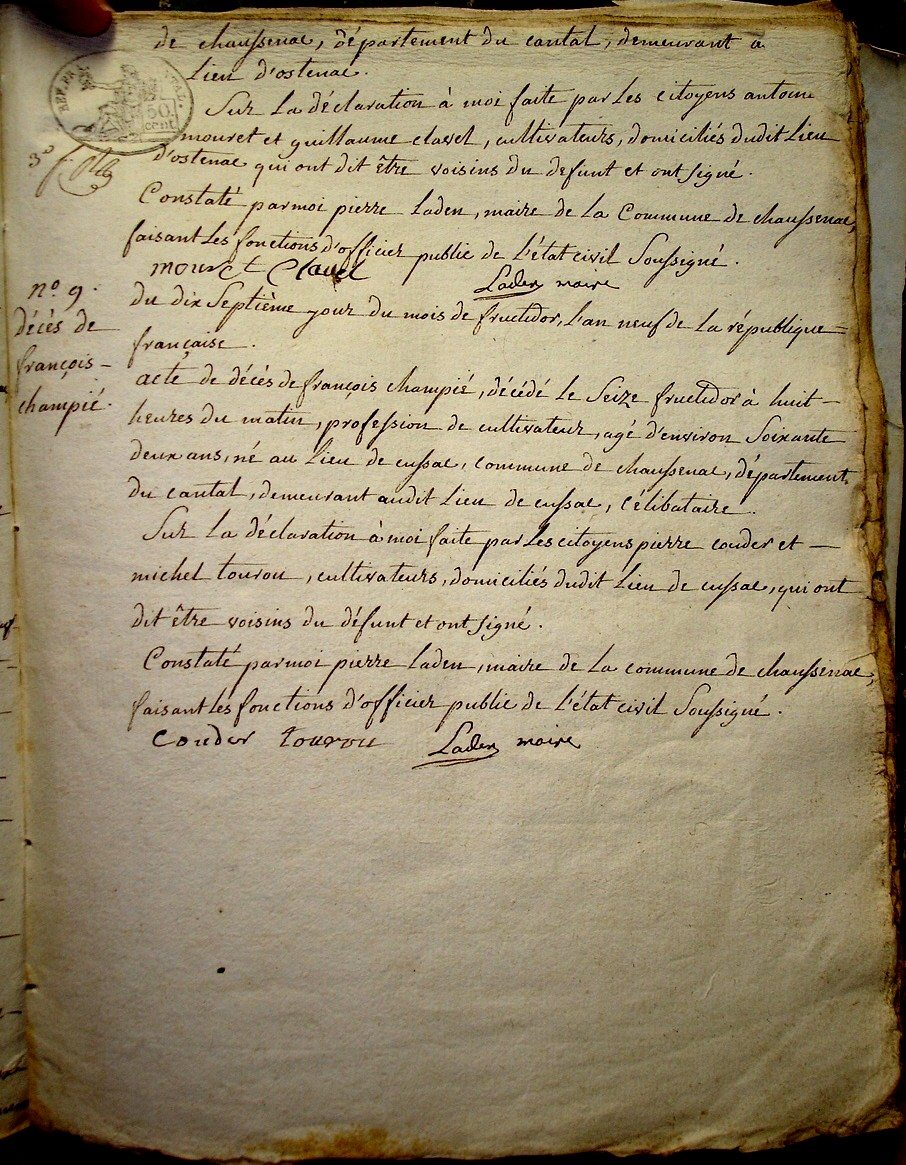 de chaussenac, département du cantal, demeurant a
Lieu d'ostenac.
Sur La déclaration à moi faite par Les citoyens antoine
mouret et guillaume clavel, cultivateurs, domiciliés dudit Lieu
d'ostenac qui ont dit être voisins du defunt et ont signé.
Constaté par moi pierre Laden, maire de La Commune de chaussenac,
faisant Les fonctions d'officier public de L'état civil Soussigné.
mouret Clavel Laden maire
nº 9.
décès de
françois-
champié.
du dix Septième jour du mois de fructidor, L'an neuf de La république=
française.
acte de décès de françois champié, décédé le Seize fructidor à huit—
heures du matin, profession de cultivateur, agé d'environ Soixante
deux ans, né au Lieu de cussac, commune de chaussenac, département
du cantal, demeurant audit Lieu de cussac, célibataire.
Sur La déclaration à moi faite par Les citoyens pierre couder et —
michel tourou, cultivateurs, domiciliés dudit Lieu de cussac, qui ont
dit être voisins du défunt et ont signé.
Constaté par moi pierre Laden, maire de La commune de chaussenac,
faisant Les fonctions d'officier public de L'état civil Soussigné.
Couder tourou Laden maire